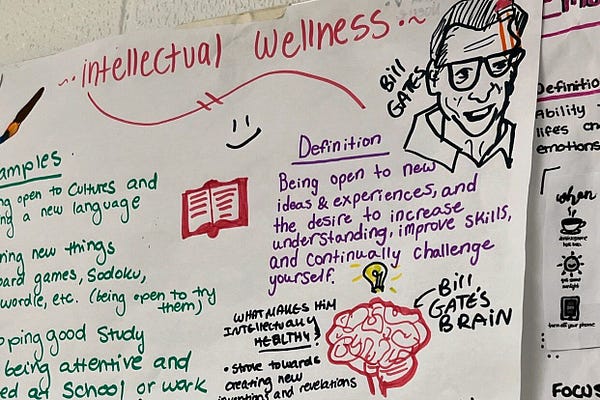 intellectual wellness
Bill
GATES
amples
ng open to Cultures and
ng a new language
ning new things
oard games, Sodoku,
wordle, etc. (being open to try
them)
ping good Study
being attentive and
ed at School or work
Definition
Being open to new
ideas & experiences, and
the desire to increase
understanding, improve skills,
and continually challenge
yourself.
WHAT MAKES HIM
INTELLECTUALLY
HEALTHY?
• strove towards
creating new
inventions and revelations
Bill
GATE'S
BRAIN
Definitio
Ability
lifes ch
emotions
when
turn off your phone
FOCUS